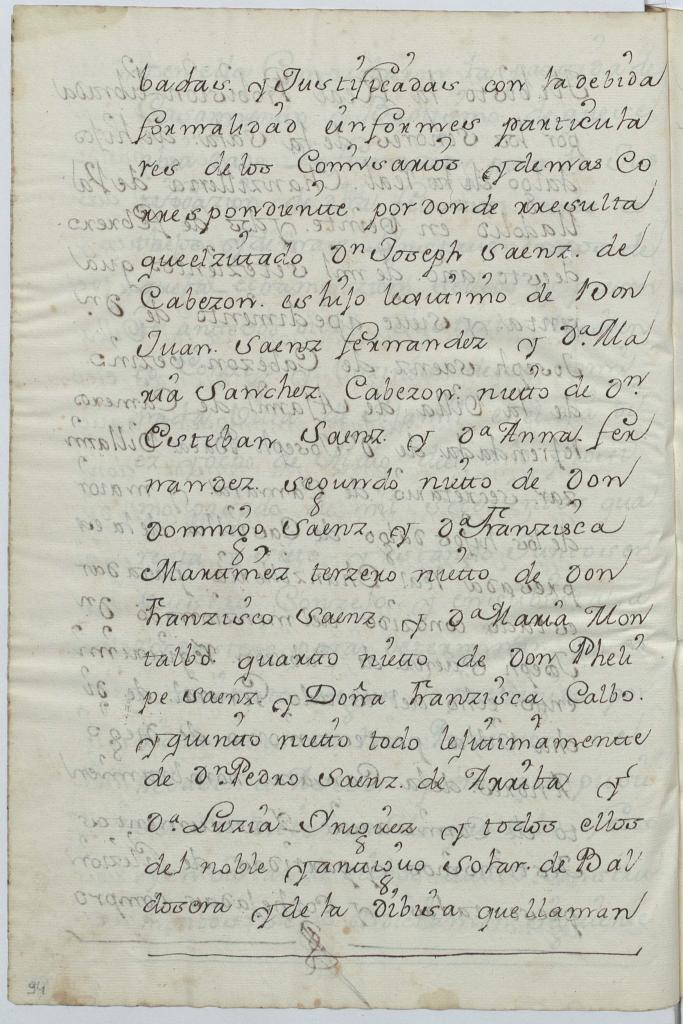 badas. y Justificadas con la debida
formalidad einformes particula
res de los Comisarios ydemas Co
rrespondiente por donde rresulta
queelzitado Dn Joseph Saenz. de
Cabezon. es hijo lexitimo de Don
Juan. Saenz fernandez y Da. Ma
ria Sanchez Cabezon. nietto de Dn.
Esteban Saenz. y Da Anna. fer
nandez. segundo nietto de Don
Domingo Saenz y Da Franzisca
Martinez terzero nietto de Don
Franzisco Saenz y Da Maria Mon
talbo. quartto nietto de Don Pheli
pe Saenz. y Doña Franzisca Calbo.
y quintto nietto todo lexitimamentte
de Dn. Pedro Saenz. de Arriba y
Da. Luzia Yniguez y todos ellos
del noble yantiguo Solar. de Bal
dosera yde la Dibisa quellaman
94